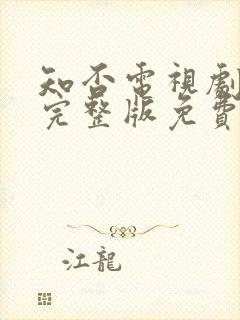 知否電視劇
完整版免費
江龍